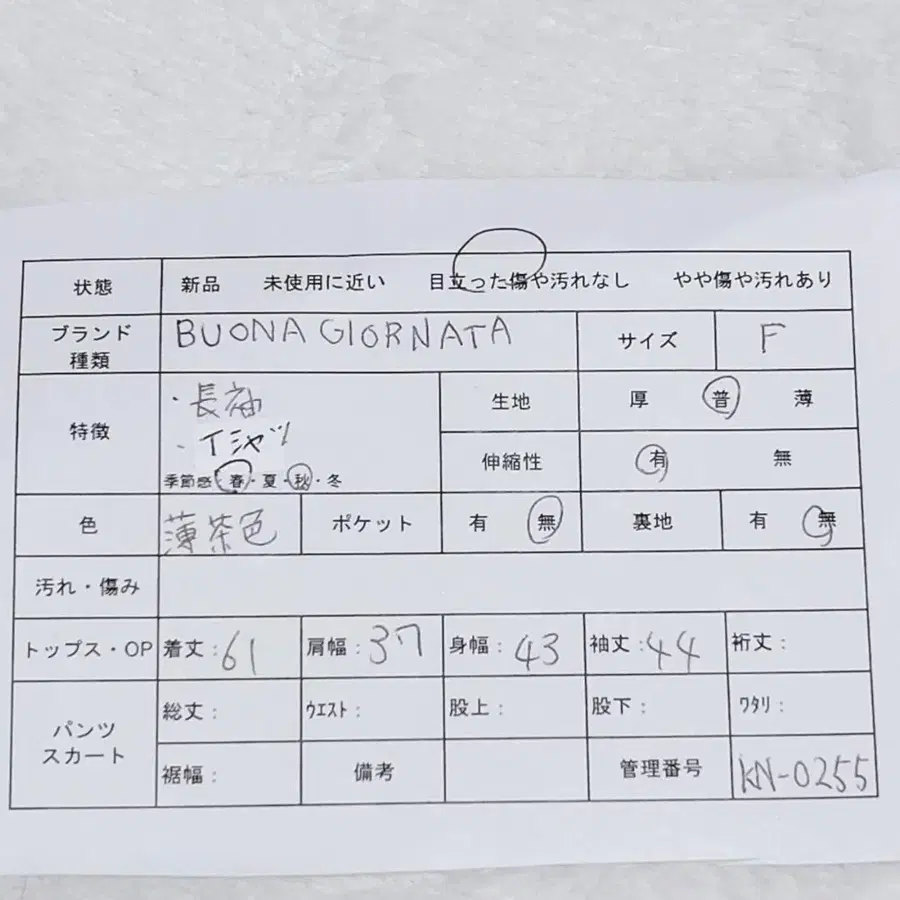 状態 新品 未使用に近い 目立った傷や汚れなし やや傷や汚れあり
ブランド 種類 BUONA GIORNATA サイズ F
特徴 ・長袖 生地 厚 普 薄
・Tシャツ 伸縮性 有 無
季節感:春・夏・秋・冬
色 薄茶色 ポケット 有 無 裏地 有 無
汚れ・傷み
トップス・OP 着丈:61 肩幅:37 身幅:43 袖丈:44 裄丈:
パンツ スカート 総丈: ウエスト: 股上: 股下: ワタリ:
裾幅: 備考 管理番号 KN-0255